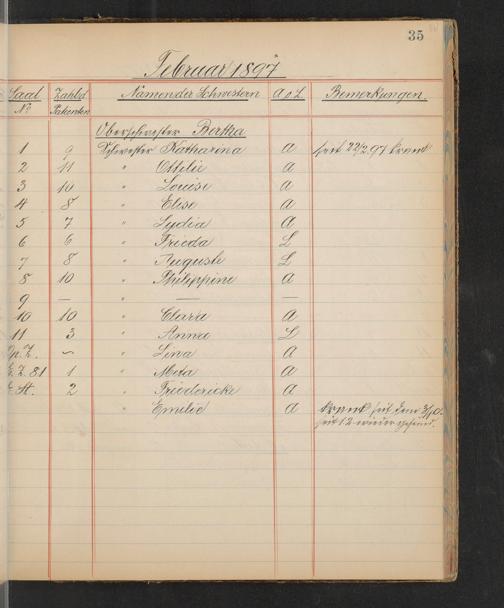 35
Februar 1897
Saal No Zahl d. Patienten Namen der Schwestern A o L Bemerkungen.
Oberschwester Bertha
1 9 Schwester Katharina A seit 22/2 97 krank
2 11 " Ottilie A
3 10 " Louise A
4 8 " Elise A
5 7 " Lydia A
6 6 " Frieda L
7 8 " Auguste L
8 10 " Philippine A
9 — " — —
10 10 " Clara A
11 3 " Anna L
Op. Z. ~ " Lina A
Z. 81 1 " Meta A
St. 2 " Friedericke A
" Emilie A krank seit dem
seit 12 wieder gesund.